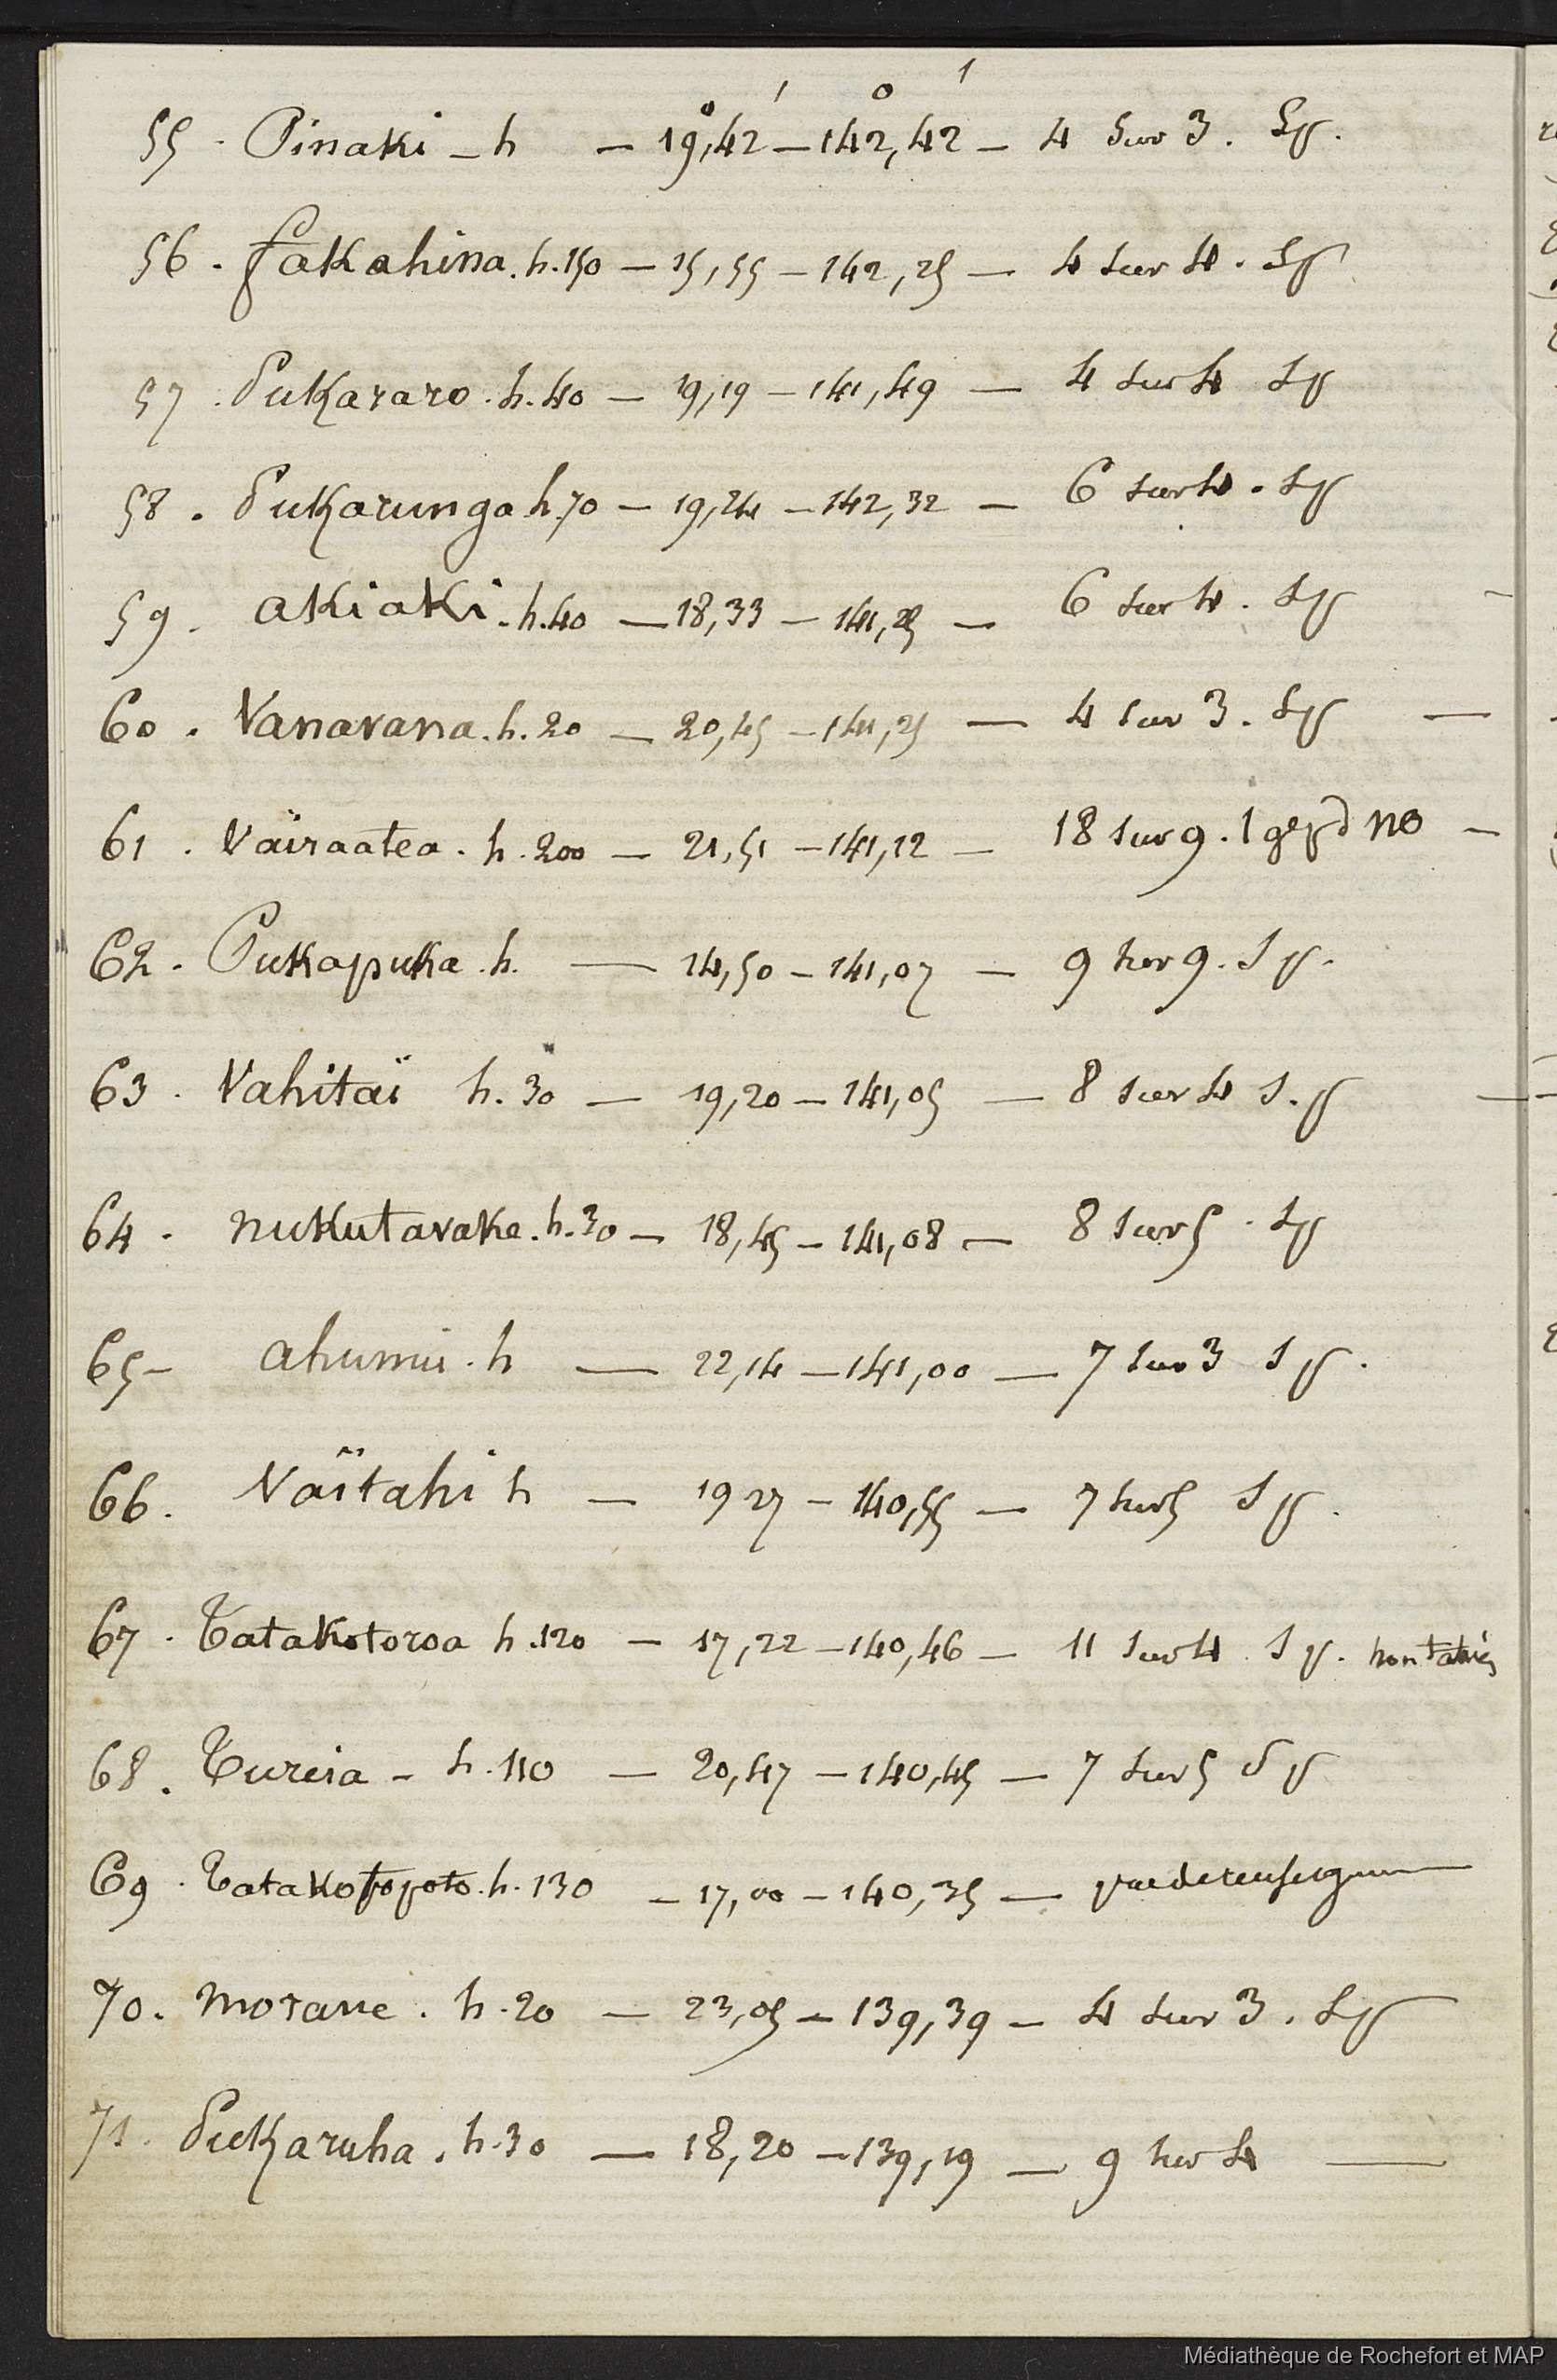 55. Pinaki – h – 19°,42' – 142°,42' – 4 sur 3. Sp.
56. fakahina. h. 150 – 15,55 – 142,25 – 4 sur 4. Sp
57. Pukararo. h. 40 – 19,19 – 141,49 – 4 sur 4 Sp
58. Pukarunga h. 70 – 19,24 – 142,32 – 6 sur 4. Sp
59. akiaki. h. 40 – 18,33 – 141,25 – 6 sur 4. Sp
60. Vanavana. h. 20 – 20,45 – 141,25 – 4 sur 3. Sp –
61. Vaïraatea. h. 200 – 21,51 – 141,12 – 18 sur 9. 1 NO –
62. Pukapuka. h. – 14,50 – 141,07 – 9 sur 9. Sp.
63. Vahitaï h. 30 – 19,20 – 141,05 – 8 sur 4 S.p
64. nukutavake. h. 30 – 18,45 – 141,08 – 8 sur 5. Sp
65– ahunui. h – 22,14 – 141,00 – 7 sur 3 Sp.
66. Vaïtahi h – 19 27 – 140,55 – 7 sur 5 Sp.
67. Tatakotoroa h. 120 – 17,22 – 140,46 – 11 sur 4. Sp.
68. Tureia – h. 110 – 20,47 – 140,45 – 7 sur 5 Sp
69. Tatakotopoto. h. 130 – 17,00 – 140,35 –
70. Morane. h. 20 – 23,05 – 139,39 – 4 sur 3. Sp
71. Pukaruha. h. 30 – 18,20 – 139,19 – 9 sur 4 –
Médiathèque de Rochefort et MAP